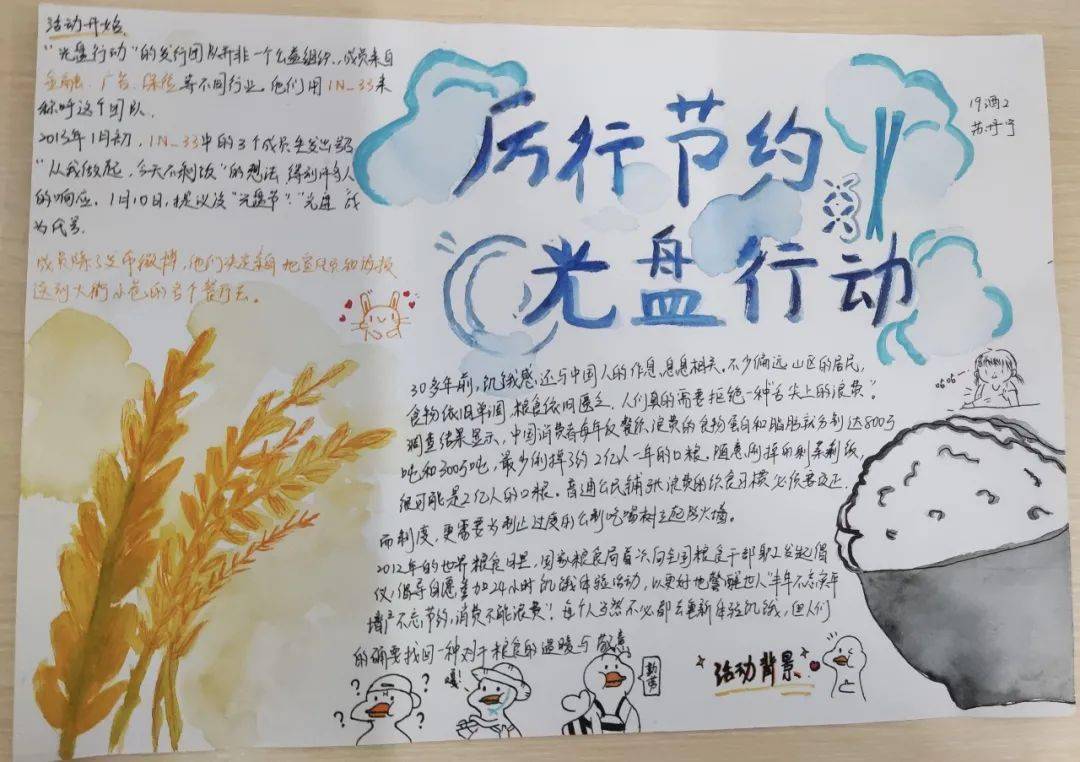 活动开始
"光盘行动"的发行团队并非一个公益组织,成员来自
金融、广告、保险等不同行业,他们用IN_33来
称呼这个团队.
2013年1月初,IN_33中的3个成员突发出
"从我做起,今天不剩饭"的想法,得到许多人
的响应,1月10日,提议设"光盘节".
为代号.
成员除了发布微博,他们决定
大街小巷的各个餐厅去。
厉行节约
光盘行动
19酒2
30多年前,饥饿感,还与中国人的作息息息相关,不少偏远山区的居民,
食物依旧单调,粮食依旧匮乏,人们真的需要拒绝一种"舌尖上的浪费".
调查结果显示,中国消费者每年仅餐饮浪费的食物蛋白和脂肪就分别达800万
吨和300万吨,最少倒掉了约2亿人一年的口粮,随意倒掉的剩菜剩饭,
很可能是2亿人的口粮,普通公民铺张浪费的饮食习惯必须要改正.
而制度,更需要为制止过度的公款吃喝树立起防火墙。
2012年的世界粮食日里,国家粮食局首次向全国粮食干部职工发起倡
仪,倡导自愿参加24小时饥饿体验活动,以更好地警醒世人"丰年不忘灾年
增产不忘节约,消费不能浪费!每个人当然不必都去重新体验饥饿,但人们
的确要找回一种对于粮食的温暖与敬意
嘎!
活动背景